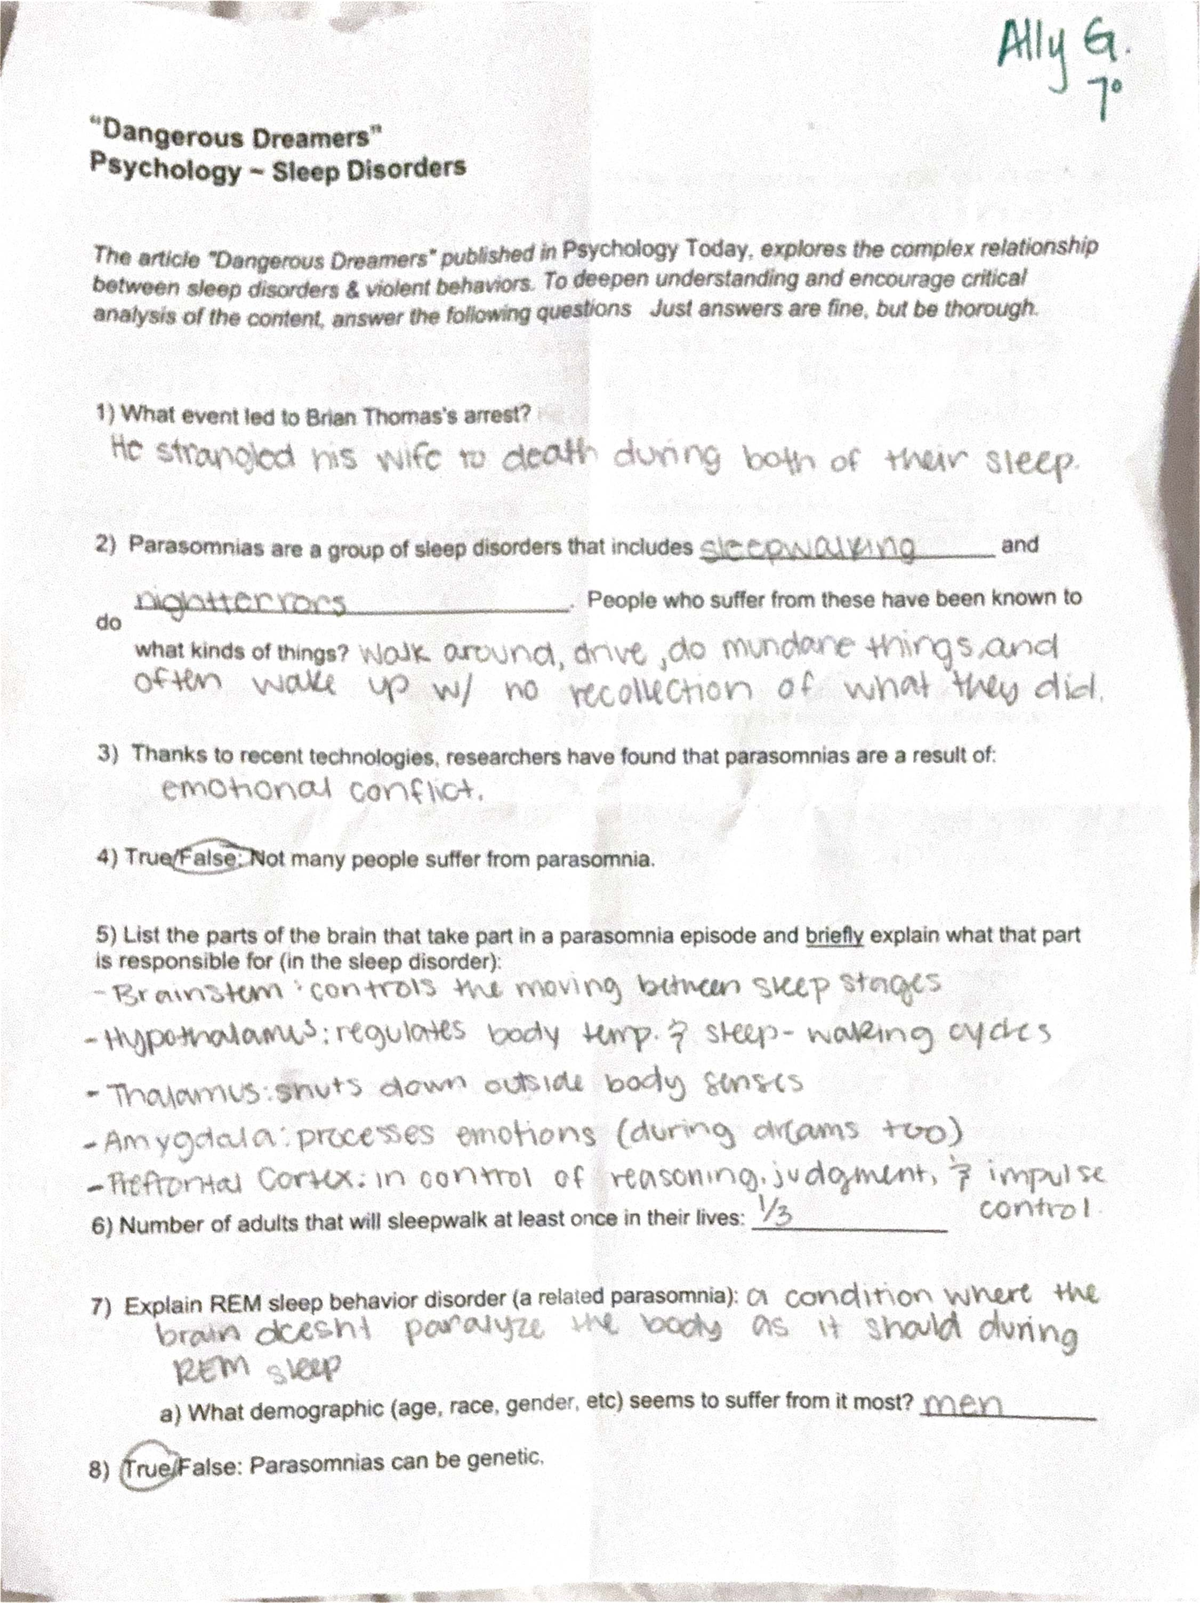 Ally G.
7°
"Dangerous Dreamers"
Psychology ~ Sleep Disorders
The article "Dangerous Dreamers" published in Psychology Today, explores the complex relationship
between sleep disorders & violent behaviors. To deepen understanding and encourage critical
analysis of the content, answer the following questions Just answers are fine, but be thorough.
1) What event led to Brian Thomas's arrest?
He strangled his wife to death during both of their sleep.
2) Parasomnias are a group of sleep disorders that includes sleepwalking and
nightterrors. People who suffer from these have been known to
do
what kinds of things? Walk around, drive, do mundane things, and
often wake up w/ no recollection of what they did.
3) Thanks to recent technologies, researchers have found that parasomnias are a result of:
emotional conflict.
4) True/False: Not many people suffer from parasomnia.
5) List the parts of the brain that take part in a parasomnia episode and briefly explain what that part
is responsible for (in the sleep disorder):
- Brainstem: controls the moving between sleep stages
- Hypothalamus: regulates body temp. & sleep-waking cycles
- Thalamus: shuts down outside body senses
- Amygdala: processes emotions (during dreams too)
- Prefrontal Cortex: in control of reasoning, judgment, & impulse
control.
6) Number of adults that will sleepwalk at least once in their lives: 1/3
7) Explain REM sleep behavior disorder (a related parasomnia): a condition where the
brain doesn't paralyze the body as it should during
REM sleep
a) What demographic (age, race, gender, etc) seems to suffer from it most? men
8) True/False: Parasomnias can be genetic.